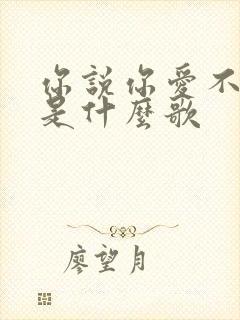 你說你愛不
是什麼歌
廖望月